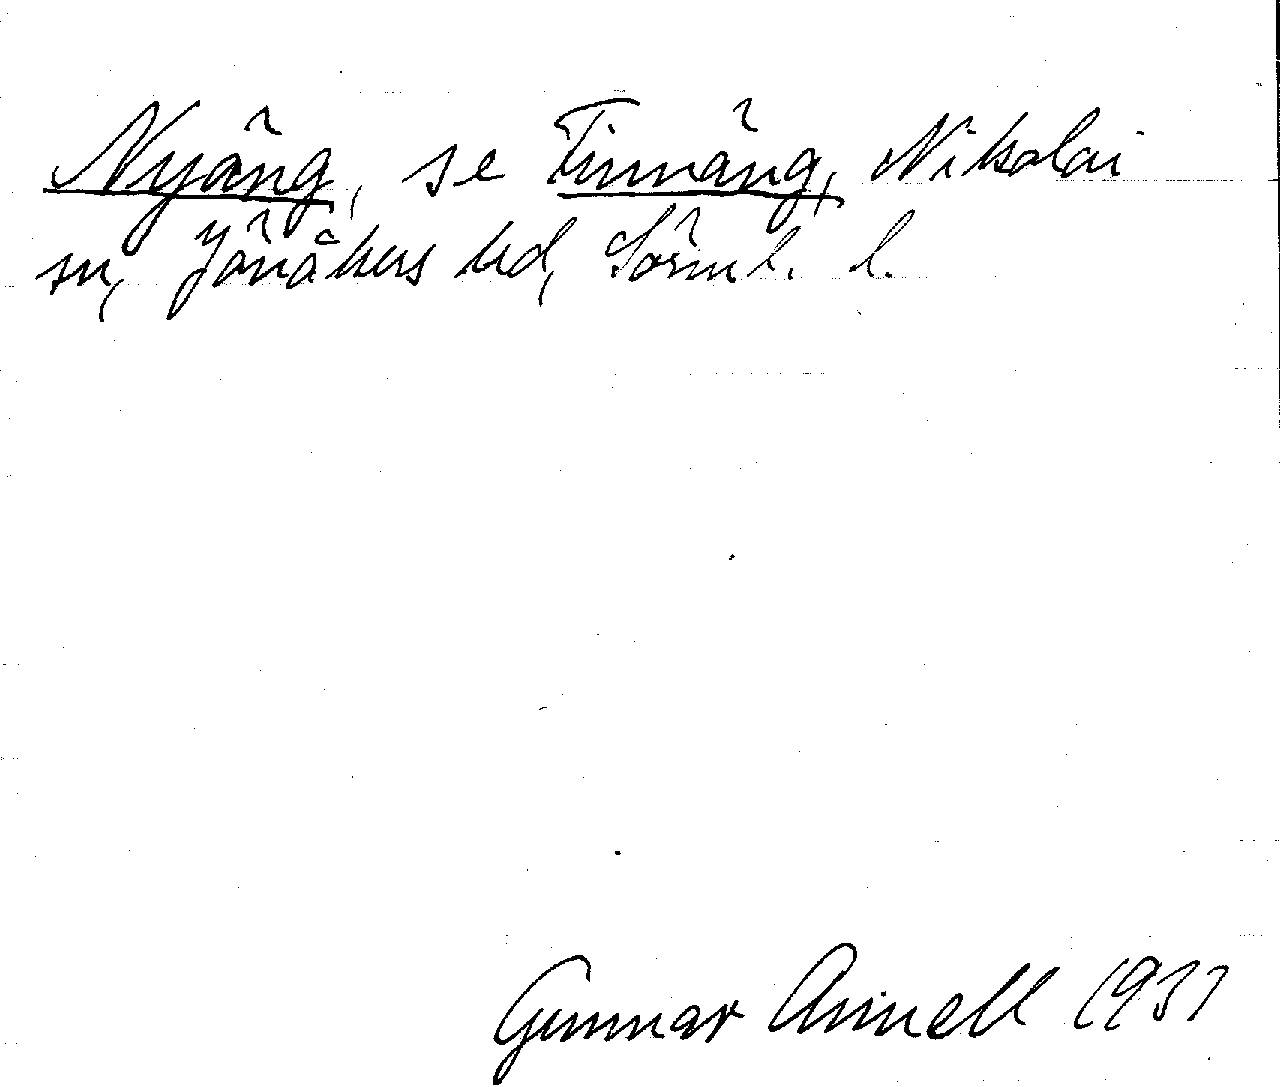 Nyäng, se Finnäng, Nikolai
sn, Jönåkers hd, Sörml. l.
Gunnar Arinell 1931